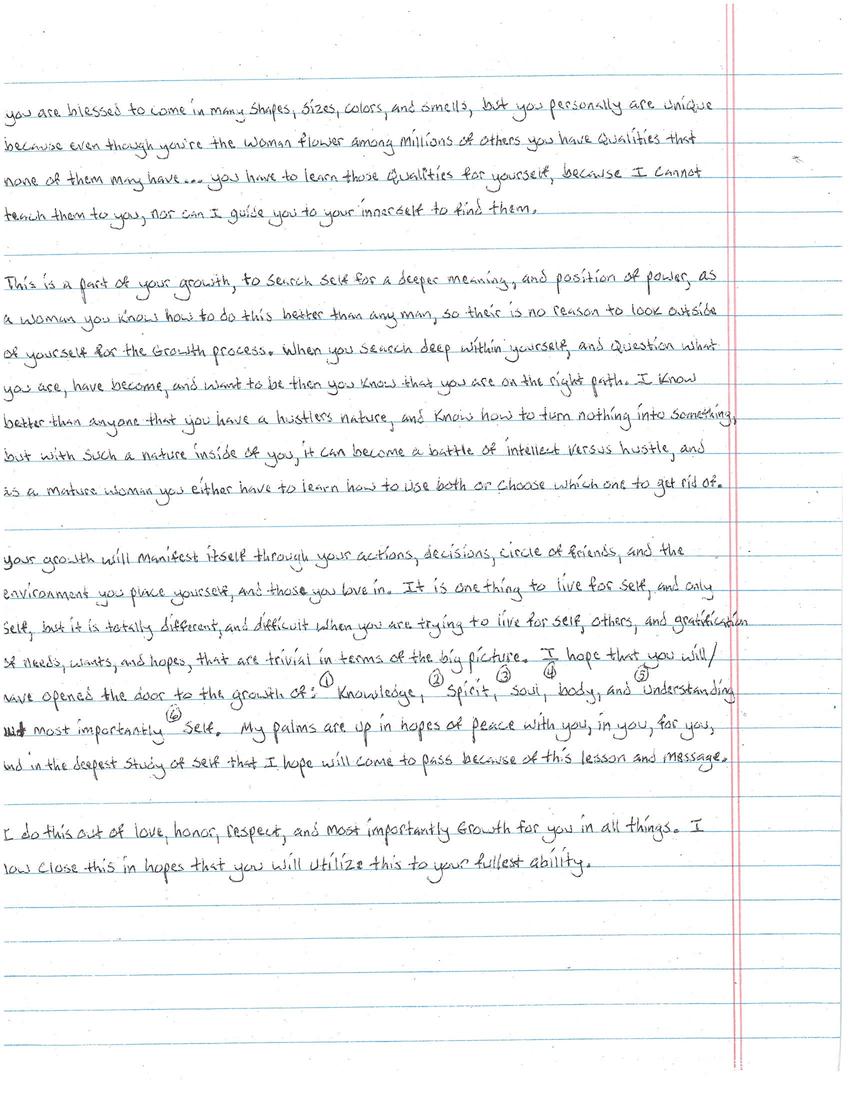 you are blessed to come in many shapes, sizes, colors, and smells, but you personally are unique
because even though you're the woman flower among millions of others you have qualities that
none of them may have... you have to learn those qualities for yourself, because I cannot
teach them to you, nor can I guide you to your innerself to find them.
This is a part of your growth, to search self for a deeper meaning, and position of power, as
a woman you know how to do this better than any man, so their is no reason to look outside
of yourself for the Growth process. When you search deep within yourself, and question what
you are, have become, and want to be then you know that you are on the right path. I know
better than anyone that you have a hustlers nature, and know how to turn nothing into something,
but with such a nature inside of you, it can become a battle of intellect versus hustle, and
as a mature woman you either have to learn how to use both or choose which one to get rid of.
your growth will manifest itself through your actions, decisions, circle of friends, and the
environment you place yourself, and those you love in. It is one thing to live for self, and only
self, but it is totally different, and difficult when you are trying to live for self, others, and gratification
of needs, wants, and hopes, that are trivial in terms of the big picture. I hope that you will/
have opened the door to the growth of: ① Knowledge, ② Spirit, ③ Soul, ④ body, and ⑤ Understanding
most importantly ⑥ Self. My palms are up in hopes of peace with you, in you, for you,
and in the deepest study of self that I hope will come to pass because of this lesson and message.
I do this out of love, honor, respect, and most importantly Growth for you in all things. I
now close this in hopes that you will utilize this to your fullest ability.